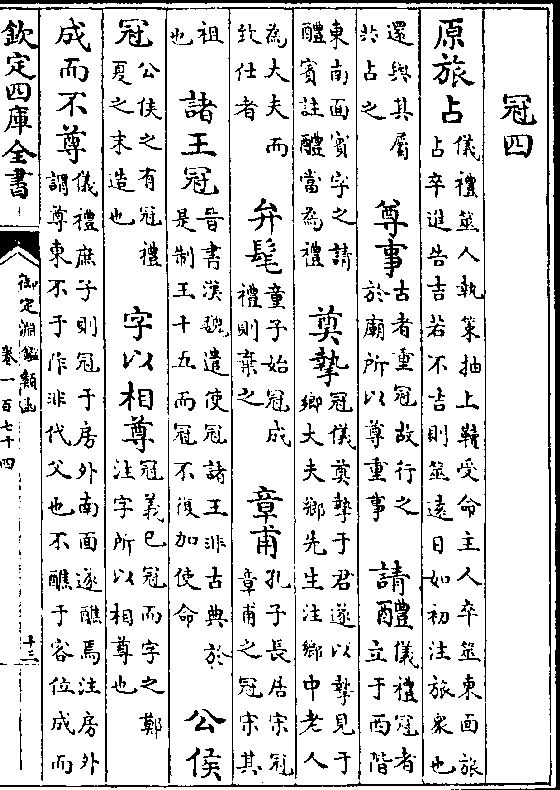 冠四
原旅占儀禮筮人執策抽上韇受命主人卒筮東面旅
占卒進告吉若不吉則筮遠日如初注旅衆也
還與其屬
共占之
尊事古者重冠故行之
於廟所以尊重事
請醴儀禮冠者
立于西階
東南面賓字之請
醴賓註醴當為禮
奠摯冠儀奠摯于君遂以摯見于
鄉大夫鄉先生注鄉中老人
為大夫而
致仕者
弁髦童子始冠成
禮則棄之
章甫孔子長居宋冠
章甫之冠宋其
祖
也
諸王冠晉書漢魏遣使冠諸王非古典於
是制王十五而冠不復加使命
公侯
冠公侯之有冠禮
夏之末造也
字以相尊冠義已冠而字之鄭
注字所以相尊也
成而不尊儀禮庶子則冠于房外南面遂醮焉注房外
謂尊東不于阼非代父也不醮于客位成而
欽定四庫全書
御定淵鑑類函
卷一百七十四
十三